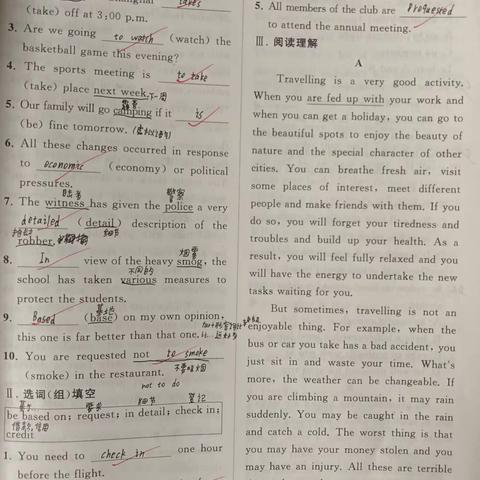 takes
(take) off at 3:00 p.m.
3. Are we going to watch (watch) the
basketball game this evening?
4. The sports meeting is to take
(take) place next week. 下一周
露营
5. Our family will go camping if it is
(be) fine tomorrow. (虚拟语句)
6. All these changes occurred in response
to economic (economy) or political
pressures.
目击者 警察
7. The witness has given the police a very
detailed (detail) description of the
robber. 细节
烟雾
8. In view of the heavy smog, the
不同的
school has taken various measures to
protect the students.
基地
9. Based (base) on my own opinion,
this one is far better than that one.
10. You are requested not to smoke
(smoke) in the restaurant. 不要吸烟
not to do
Ⅱ. 选词(组)填空
基于 要求 细节 登记
be based on; request; in detail; check in;
credit 借款，信用
1. You need to check in one hour
before the flight.
5. All members of the club are requested
to attend the annual meeting.
Ⅲ. 阅读理解
A
Travelling is a very good activity.
When you are fed up with your work and
when you can get a holiday, you can go to
the beautiful spots to enjoy the beauty of
nature and the special character of other
cities. You can breathe fresh air, visit
some places of interest, meet different
people and make friends with them. If you
do so, you will forget your tiredness and
troubles and build up your health. As a
result, you will feel fully relaxed and you
will have the energy to undertake the new
tasks waiting for you.
But sometimes, travelling is not an
enjoyable thing. For example, when the
bus or car you take has a bad accident, you
just sit in and waste your time. What's
more, the weather can be changeable. If
you are climbing a mountain, it may rain
suddenly. You may be caught in the rain
and catch a cold. The worst thing is that
you may have your money stolen and you
may have an injury. All these are terrible